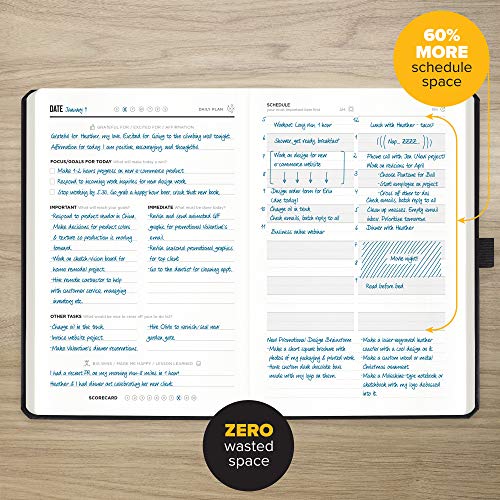 60%
MORE
schedule
space
DATE January 9
DAILY PLAN
GRATEFUL FOR / EXCITED FOR / AFFIRMATION
Grateful for Heather, my love. Excited for Going to the climbing wall tonight.
Affirmation for today: I am positive, encouraging, and thoughtful.
FOCUS/GOALS FOR TODAY What will make today a win?
Make 1-2 hours progress on new e-commerce product.
Respond to incoming work inquiries for new design work.
Stop working by 5:30. Go grab a happy hour beer, crack that new book.
IMPORTANT What will reach your goals?
- Respond to product vendor in China.
Make decisions for product colors
& texture so production is moving
forward.
- Work on sketch-vision board for
home remodel project.
- Hire remote contractor to help
with customer service, managing
inventory etc.
IMMEDIATE What must be done today?
- Revise and send animated GIF
graphic for promotional Valentine's
email.
- Revise seasonal promotional graphics
for top client
- Go to the dentist for cleaning appt.
OTHER TASKS What would be nice to cross off your to-do list?
- Change oil in the truck.
- Invoice website project.
- Make Valentine's dinner reservations.
- Hire Chris to varnish/seal new
garden gate.
BIG WINS / MADE ME HAPPY / LESSON LEARNED
I had a recent PR on my morning run-8 miles in 1 hour!
Heather & I had dinner out celebrating her new client.
SCORECARD
SCHEDULE
your most important task first
5 Workout Long run 1 hour
6 Shower, get ready, breakfast!
7 Work on design for new
e-commerce website
8
9 Design order form for Erin
(due today!)
10 Change oil in truck
Check emails, batch reply to all
11 Business online webinar
12 Lunch with Heather - tacos!
1 ((( Nap... ZZZZ... )))
2 Phone call with Jon (New project!)
Work on revisions for April
3 - Choose Pantone for Bill
- Start employee on project
4 - Cross off other to-dos
Check emails, batch reply to all
5 Clean up messes. Empty email
inbox. Prioritize tomorrow
6 Dinner with Heather
Movie night!
9 Read before bed
New Promotional Design Brainstorm
- Make a short square brochure with
photos of my packaging & printed work.
- Hone custom dark chocolate bars
made with my logo on them.
- Make a laser-engraved leather
coaster with a cool design on it.
- Make a custom wood or metal
Christmas ornament.
- Make a Moleskine-type notebook or
sketchbook with my logo debossed
into it.
ZERO
wasted
space